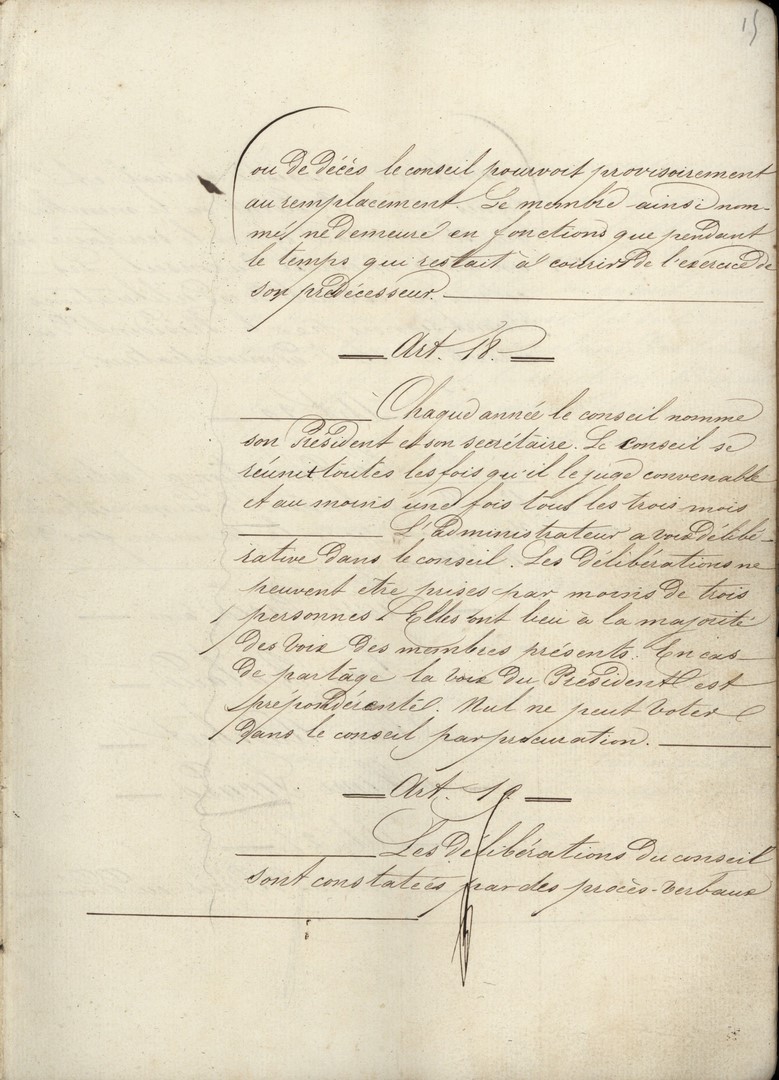 15
ou de décès le conseil pourvoit provisoirement
au remplacement. Le membre ainsi nom-
mé ne demeure en fonctions que pendant
le temps qui restait à courir de l'exercice de
son prédécesseur.
Art. 18.
Chaque année le conseil nomme
son Président et son secrétaire. Le conseil se
réunit toutes les fois qu'il le juge convenable
et au moins une fois tous les trois mois
L'administrateur a voix délibé-
rative dans le conseil. Les délibérations ne
peuvent etre prises par moins de trois
personnes. Elles ont lieu à la majorité
des voix des membres présents. En cas
de partage la voix du Président est
prépondérante. Nul ne peut voter
dans le conseil par procuration.
Art. 19
Les délibérations du conseil
sont constatées par des procès-verbaux